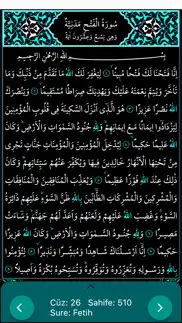 سُورَةُ الْفَتْحِ مَدَنِيَّةٌ
وَهِيَ تِسْعٌ وَعِشْرُونَ آيَةً
بِسْمِ اللّٰهِ الرَّحْمٰنِ الرَّحِيمِ
اِنَّا فَتَحْنَا لَكَ فَتْحًا مُبِينًا لِيَغْفِرَ لَكَ اللّٰهُ مَا تَقَدَّمَ مِنْ ذَنْبِكَ وَمَا
تَاَخَّرَ وَيُتِمَّ نِعْمَتَهُ عَلَيْكَ وَيَهْدِيَكَ صِرَاطًا مُسْتَقِيمًا وَيَنْصُرَكَ
اللّٰهُ نَصْرًا عَزِيزًا هُوَ الَّذِي اَنْزَلَ السَّكِينَةَ فِي قُلُوبِ الْمُؤْمِنِينَ
لِيَزْدَادُوا اِيمَانًا مَعَ اِيمَانِهِمْ وَلِلّٰهِ جُنُودُ السَّمٰوَاتِ وَالْاَرْضِ وَكَانَ
اللّٰهُ عَلِيمًا حَكِيمًا لِيُدْخِلَ الْمُؤْمِنِينَ وَالْمُؤْمِنَاتِ جَنَّاتٍ تَجْرِي
مِنْ تَحْتِهَا الْاَنْهَارُ خَالِدِينَ فِيهَا وَيُكَفِّرَ عَنْهُمْ سَيِّئَاتِهِمْ وَكَانَ
ذٰلِكَ عِنْدَ اللّٰهِ فَوْزًا عَظِيمًا وَيُعَذِّبَ الْمُنَافِقِينَ وَالْمُنَافِقَاتِ
وَالْمُشْرِكِينَ وَالْمُشْرِكَاتِ الظَّانِّينَ بِاللّٰهِ ظَنَّ السَّوْءِ عَلَيْهِمْ دَائِرَةُ
السَّوْءِ وَغَضِبَ اللّٰهُ عَلَيْهِمْ وَلَعَنَهُمْ وَاَعَدَّ لَهُمْ جَهَنَّمَ وَسَاءَتْ
مَصِيرًا وَلِلّٰهِ جُنُودُ السَّمٰوَاتِ وَالْاَرْضِ وَكَانَ اللّٰهُ عَزِيزًا
حَكِيمًا اِنَّا اَرْسَلْنَاكَ شَاهِدًا وَمُبَشِّرًا وَنَذِيرًا لِتُؤْمِنُوا
بِاللّٰهِ وَرَسُولِهِ وَتُعَزِّرُوهُ وَتُوَقِّرُوهُ وَتُسَبِّحُوهُ بُكْرَةً وَاَصِيلًا
Cüz: 26 Sahife: 510
Sure: Fetih